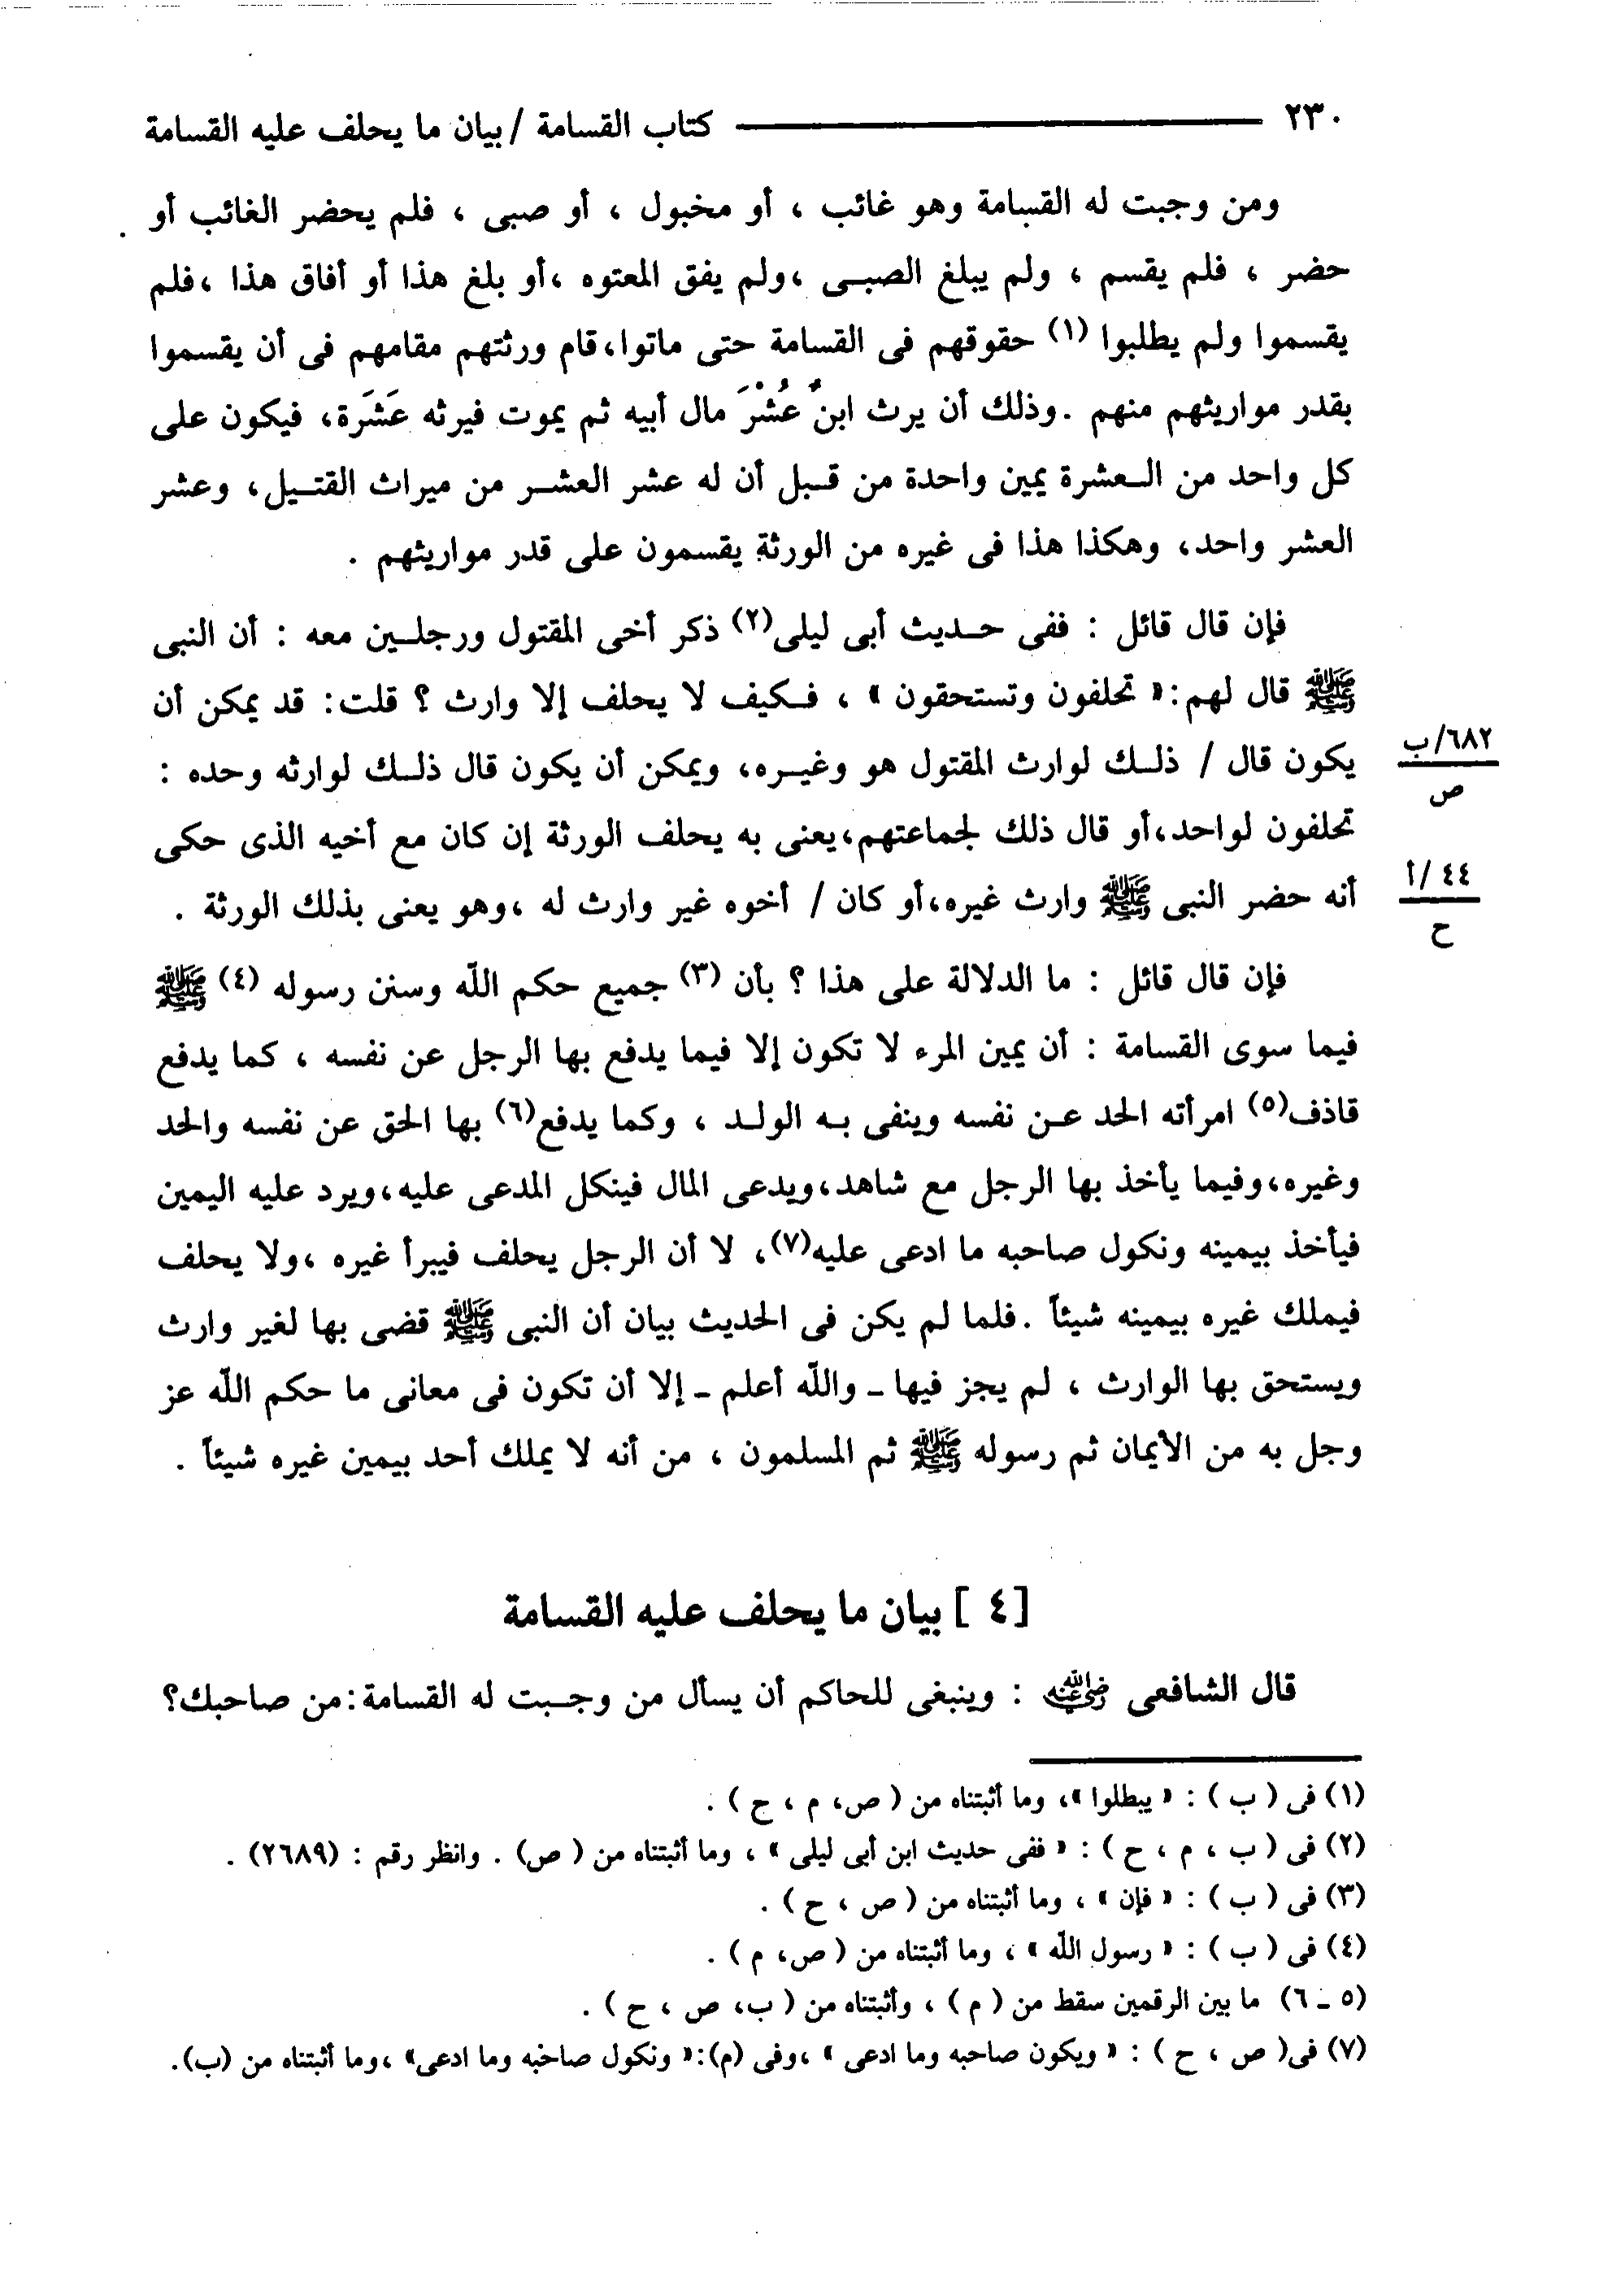 ٢٣٠ ــــــــــــــــــــ كتاب القسامة / بيان ما يحلف عليه القسامة
ومن وجبت له القسامة وهو غائب ، أو مخبول ، أو صبى ، فلم يحضر الغائب أو
حضر ، فلم يقسم ، ولم يبلغ الصبى ،ولم يفق المعتوه ،أو بلغ هذا أو أفاق هذا ،فلم
يقسموا ولم يطلبوا (١) حقوقهم فى القسامة حتى ماتوا،قام ورثتهم مقامهم فى أن يقسموا
بقدر مواريثهم منهم .وذلك أن يرث ابنٌ عُشْرَ مال أبيه ثم يموت فيرثه عَشَرة، فيكون على
كل واحد من العشرة يمين واحدة من قبل أن له عشر العشر من ميراث القتيل، وعشر
العشر واحد، وهكذا هذا فى غيره من الورثة يقسمون على قدر مواريثهم .
فإن قال قائل : ففى حديث أبى ليلى(٢) ذكر أخى المقتول ورجلين معه : أن النبى
ﷺ قال لهم:« تحلفون وتستحقون » ، فكيف لا يحلف إلا وارث ؟ قلت: قد يمكن أن
يكون قال / ذلك لوارث المقتول هو وغيره، ويمكن أن يكون قال ذلك لوارثه وحده :
٦٨٢/ب
ص
تحلفون لواحد،أو قال ذلك لجماعتهم،يعنى به يحلف الورثة إن كان مع أخيه الذى حكى
أنه حضر النبى ﷺ وارث غيره،أو كان / أخوه غير وارث له ،وهو يعنى بذلك الورثة .
٤٤ /أ
ح
فإن قال قائل : ما الدلالة على هذا ؟ بأن (٣) جميع حكم الله وسنن رسوله (٤) ﷺ
فيما سوى القسامة : أن يمين المرء لا تكون إلا فيما يدفع بها الرجل عن نفسه ، كما يدفع
قاذف(٥) امرأته الحد عن نفسه وينفى به الولد ، وكما يدفع(٦) بها الحق عن نفسه والحد
وغيره،وفيما يأخذ بها الرجل مع شاهد،ويدعى المال فينكل المدعى عليه،ويرد عليه اليمين
فيأخذ بيمينه ونكول صاحبه ما ادعى عليه(٧)، لا أن الرجل يحلف فيبرأ غيره ،ولا يحلف
فيملك غيره بيمينه شيئاً .فلما لم يكن فى الحديث بيان أن النبى ﷺ قضى بها لغير وارث
ويستحق بها الوارث ، لم يجز فيها ـ والله أعلم ـ إلا أن تكون فى معانى ما حكم الله عز
وجل به من الأيمان ثم رسوله ﷺ ثم المسلمون ، من أنه لا يملك أحد بيمين غيره شيئاً .
[ ٤ ] بيان ما يحلف عليه القسامة
قال الشافعى رضي الله عنه : وينبغى للحاكم أن يسأل من وجبت له القسامة:من صاحبك؟
(١) فى ( ب ) : « يبطلوا »، وما أثبتناه من ( ص، م ، ح ) .
(٢) فى ( ب ، م ، ح ) : « ففى حديث ابن أبى ليلى » ، وما أثبتناه من ( ص) . وانظر رقم : (٢٦٨٩) .
(٣) فى ( ب ) : « فإن » ، وما أثبتناه من ( ص ، ح ) .
(٤) فى ( ب ) : « رسول الله » ، وما أثبتناه من ( ص، م ) .
(٥ ـ ٦) ما بين الرقمين سقط من ( م ) ، وأثبتناه من ( ب، ص ، ح ) .
(٧) فى( ص ، ح ) : « ويكون صاحبه وما ادعى » ،وفى (م):« ونكول صاحبه وما ادعى» ،وما أثبتناه من (ب).